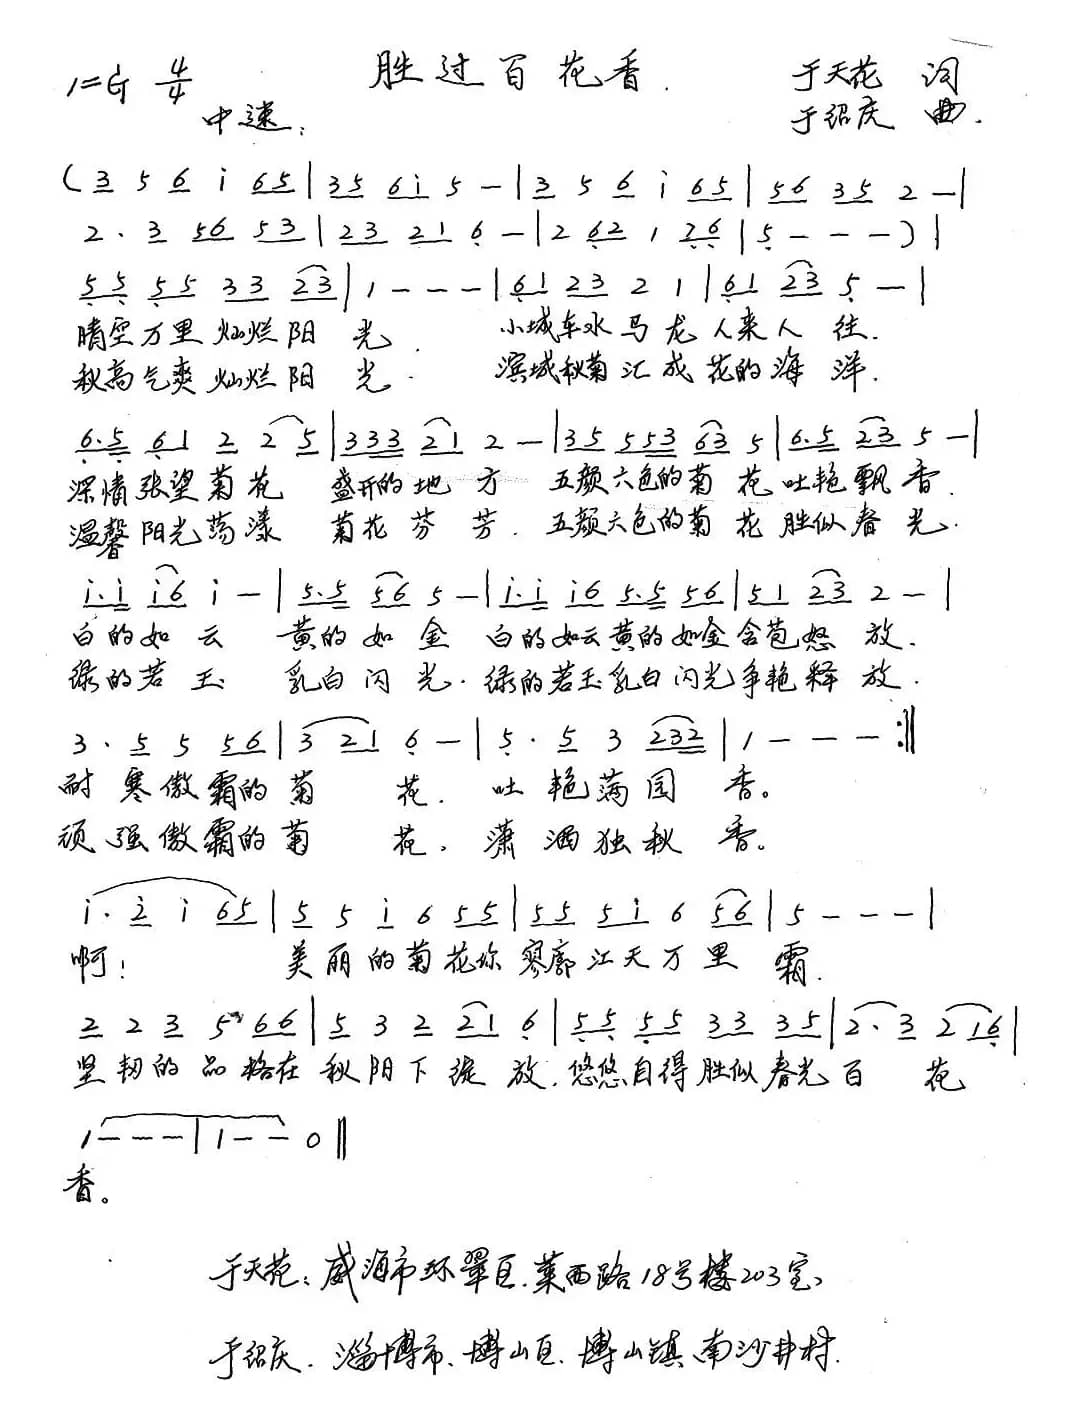 胜过百花香.
1=G 4/4
中速:
于天花 词
于绍庆 曲.
(3 5 6 i 65|35 6i 5 -|3 5 6 i 65|56 35 2 -|
2· 3 56 53|23 21 6 -|2 62 1 26|5 - - -)|
55 55 33 23|1 - - -|61 23 2 1|61 23 5 -|
晴空万里灿烂阳 光. 小城车水马龙人来人 往.
秋高气爽灿烂阳 光. 滨城秋菊汇成花的海 洋.
6·5 61 2 2 5|333 21 2 -|35 553 63 5|6·5 23 5 -|
深情张望菊花 盛开的地 方 五颜六色的菊 花吐艳飘 香.
温馨阳光荡漾 菊花 芬 芳. 五颜六色的菊 花胜似春 光.
i·i i6 i -|5·5 56 5 -|i·i i6 5·5 56|51 23 2 -|
白的如 云 黄的如 金 白的如云黄的如金含苞怒 放.
绿的若 玉 乳白闪 光. 绿的若玉乳白闪光争艳释 放.
3 · 5 5 56|3 21 6 -|5 · 5 3 232|1 - - -:||
耐 寒傲霜的菊 花. 吐 艳满园 香。
顽 强傲霜的菊 花. 潇 洒独秋 香。
i· 2 i 65|5 5 i 6 55|55 5i 6 56|5 - - -|
啊! 美丽的菊花你寥廓江天万里 霜.
2 2 3 5 66|5 3 2 21 6|55 55 33 35|2· 3 2 16|
坚韧的品格在秋阳下绽 放.悠悠自得胜似春光百 花
1 - - -|1 - - 0||
香。
于天花: 威海市环翠区.莱西路18号楼203室.
于绍庆. 淄博市、博山区.博山镇.南沙井村.